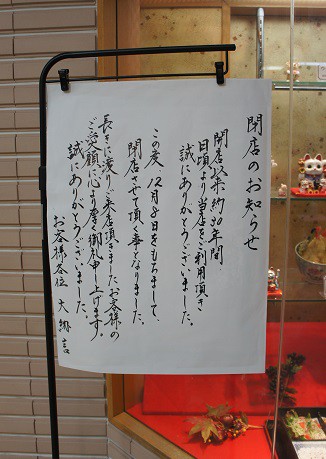 閉店のお知らせ
開店以来約30年間
日頃より当店をご利用頂き
誠にありがとうございました。
この度、12月8日をもちまして、
閉店させて頂く事となりました。
長きに渡りご来店頂きました、お客様の
ご愛顧に心より厚く御礼申し上げます。
誠にありがとうございました。
お客様各位 大納言